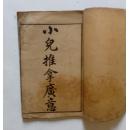 小兒推拿廣意